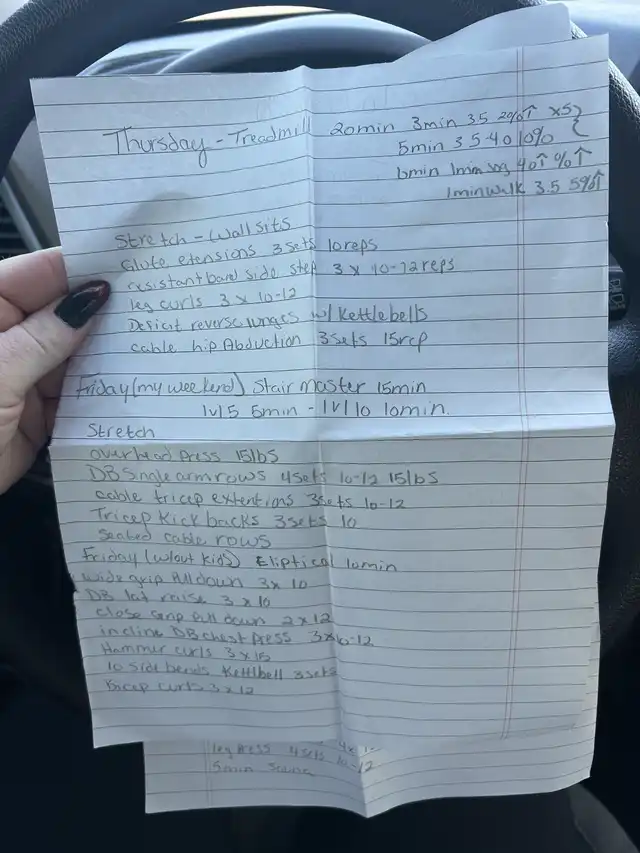 Thursday - Treadmill 20min 3min 3.5 2%↑ x5
5min 3.5-4.0 10%
1min jog 4.0↑ %↑
1min walk 3.5 5%↑
Stretch - Wall sits
Glute etensions 3 sets 10reps
resistant band side step 3 x 10-12 reps
leg curls 3 x 10-12
Deficat reverse lunges w/ Kettlebells
cable hip Abduction 3sets 15rep
Friday (my weekend) Stair master 15min
lvl 5 5min - lvl 10 10min.
Stretch
overhead press 15lbs
DB Single arm rows 4sets 10-12 15lbs
cable tricep extentions 3sets 10-12
Tricep Kick backs 3 sets 10
Seated cable rows
Friday (w/out kids) Eliptical 10min
wide grip pull down 3 x 10
DB lat raise 3 x 10
close grip pull down 2 x 12
incline DB chest press 3x10-12
Hammer curls 3 x 15
10 side bends Kettlbell 3sets
Bicep curls 3 x 12
leg press 4 sets 10-12
5min Sauna